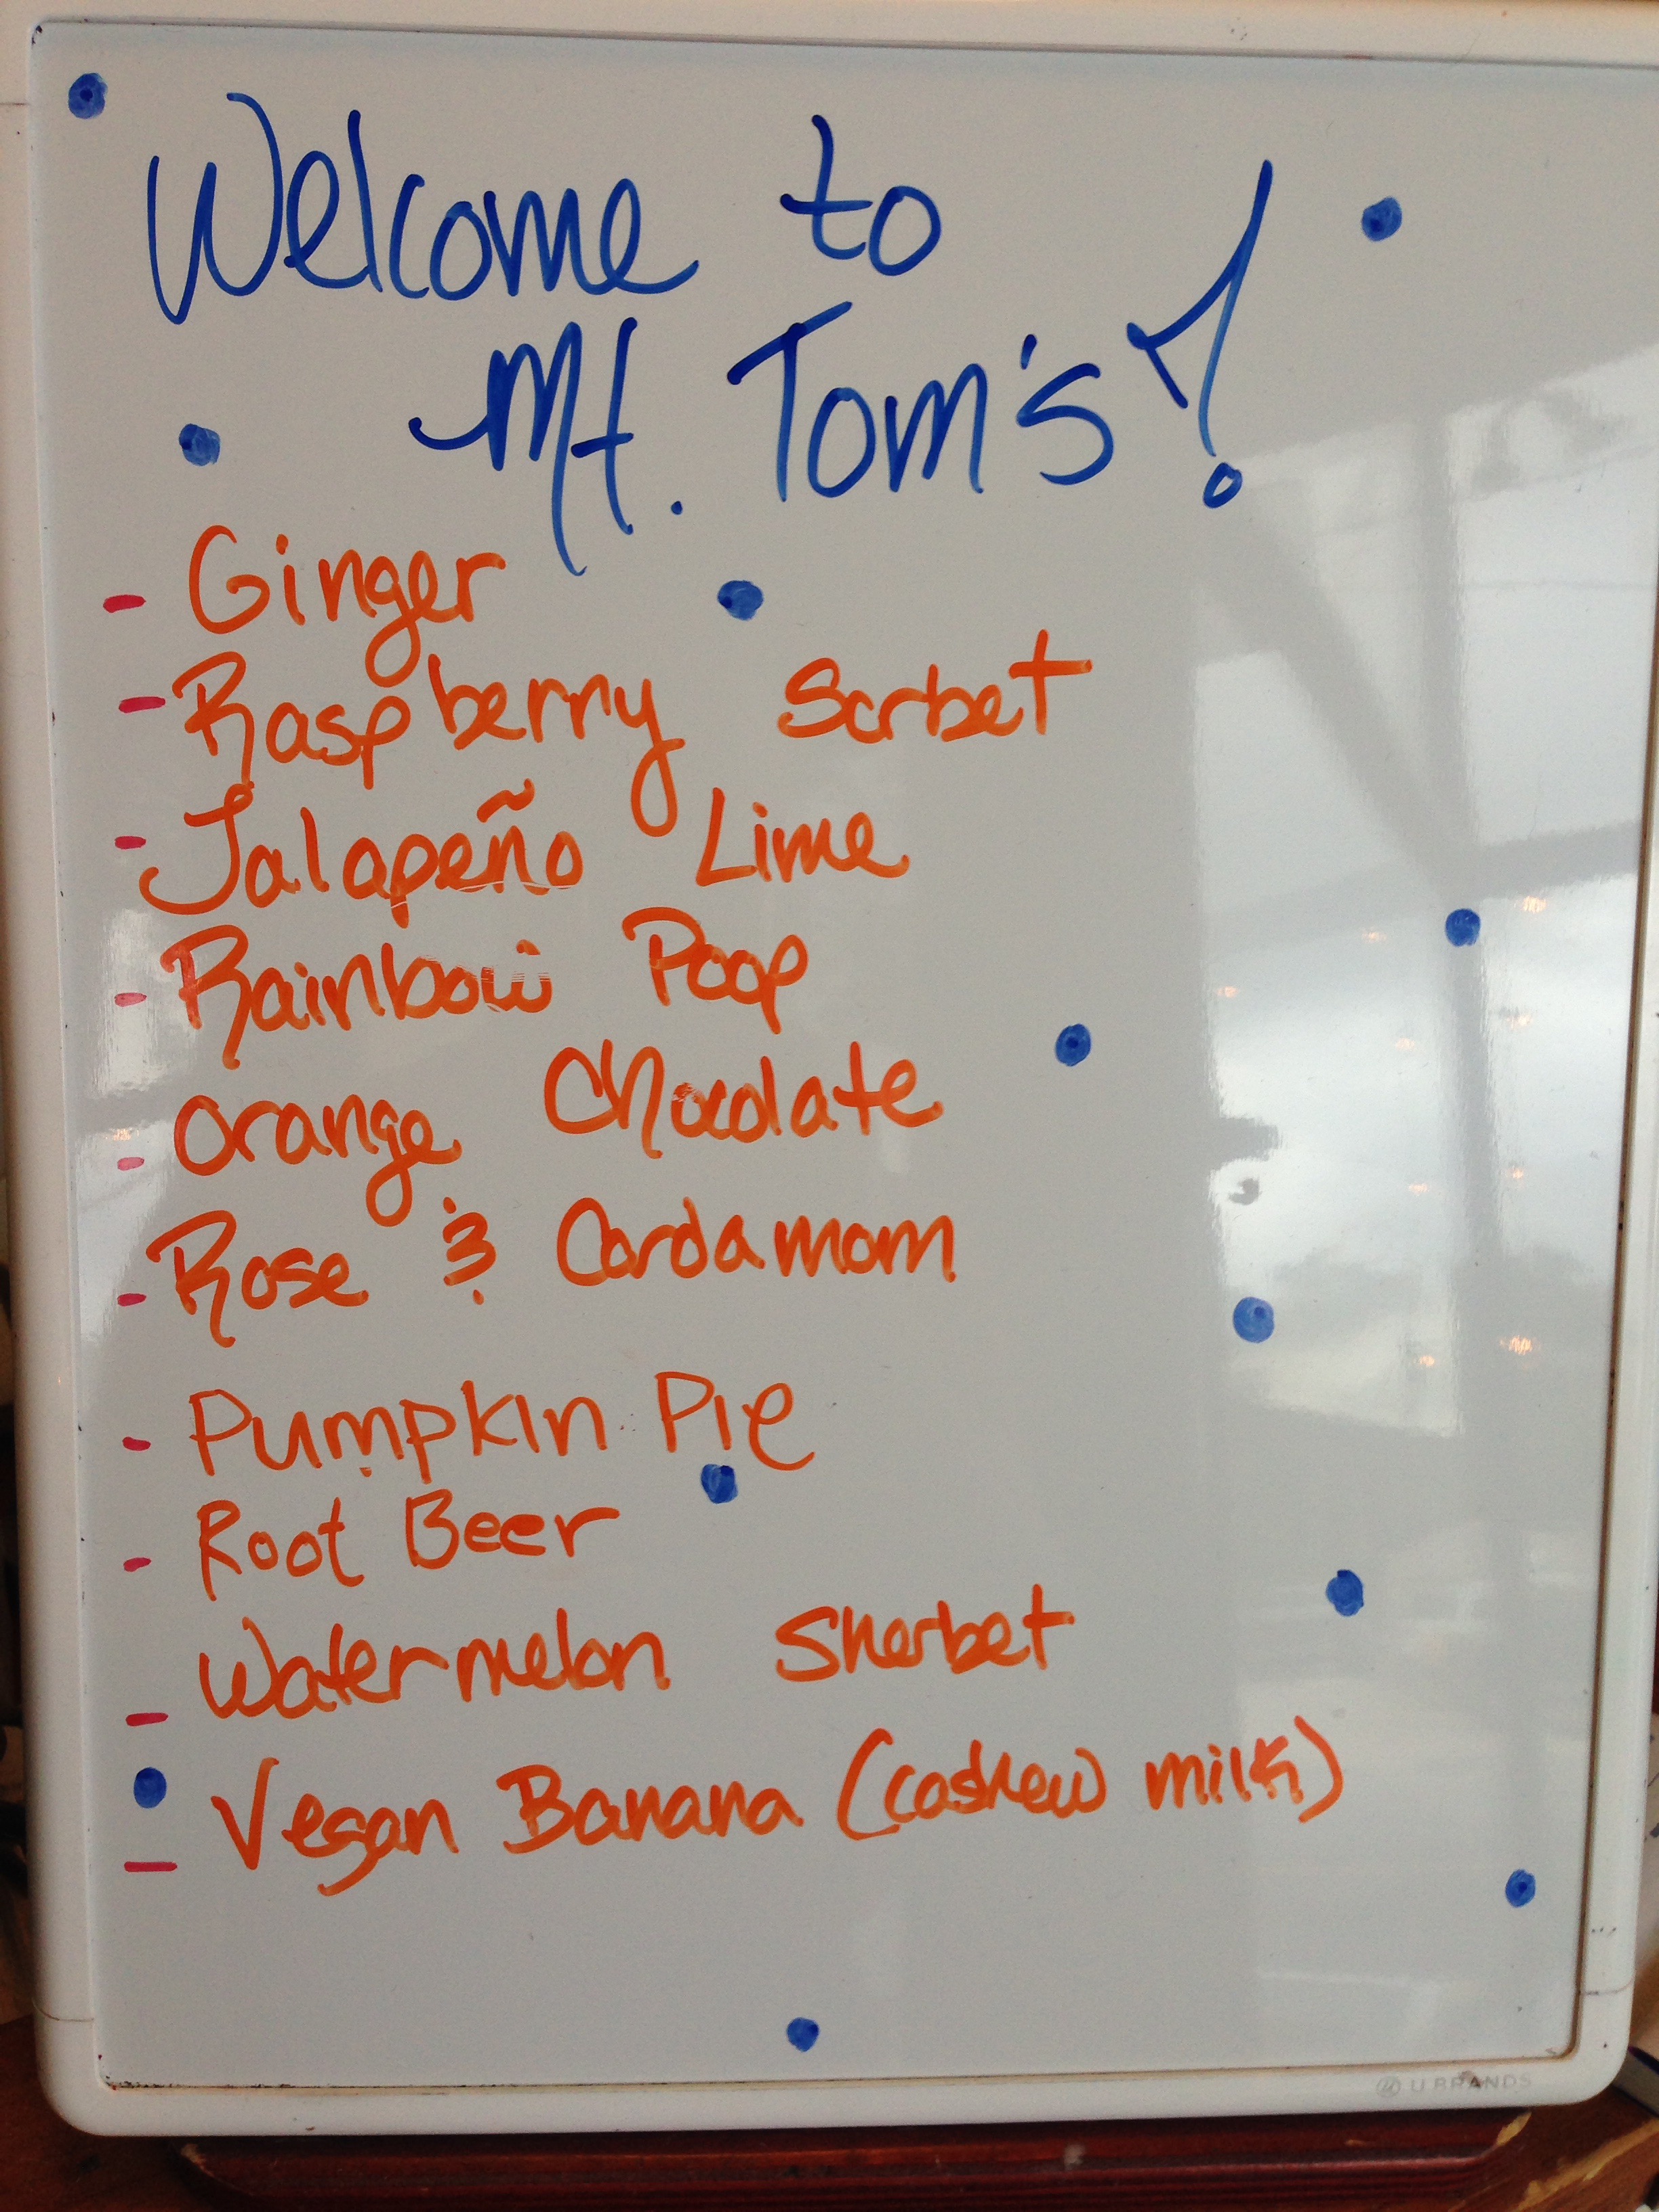 Welcome to
Mt. Tom's!
- Ginger
- Raspberry Sorbet
- Jalapeño Lime
- Rainbow Poop
- Orange Chocolate
- Rose & Cardamom
- Pumpkin Pie
- Root Beer
- Watermelon Sherbet
- Vegan Banana (cashew milk)
U BRANDS